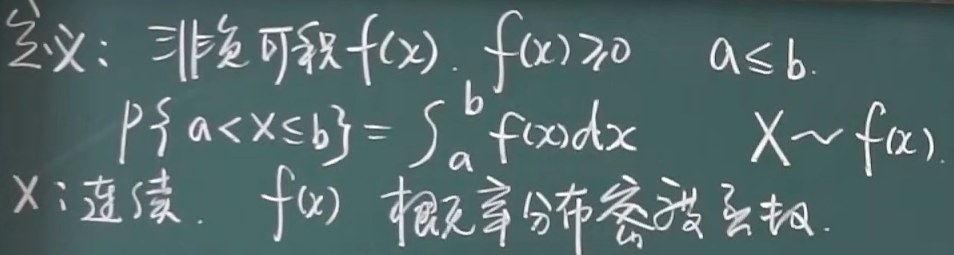 定义: 非负可积f(x). f(x)≥0 a≤b.
P{a<X≤b}=∫ₐᵇf(x)dx X~f(x).
X:连续. f(x) 概率分布密度函数.